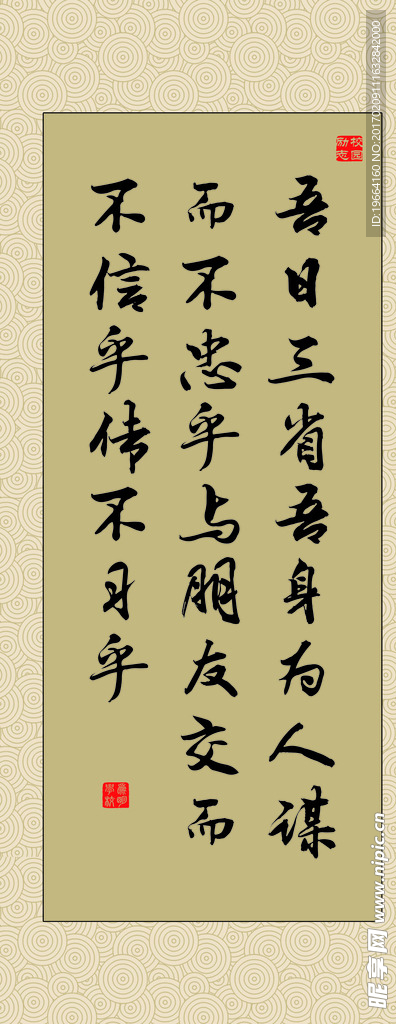 吾日三省吾身为人谋
而不忠乎与朋友交而
不信乎传不习乎
校园
励志
ID:19664160 NO:20170209111632842000
昵享网 www.nipic.cn